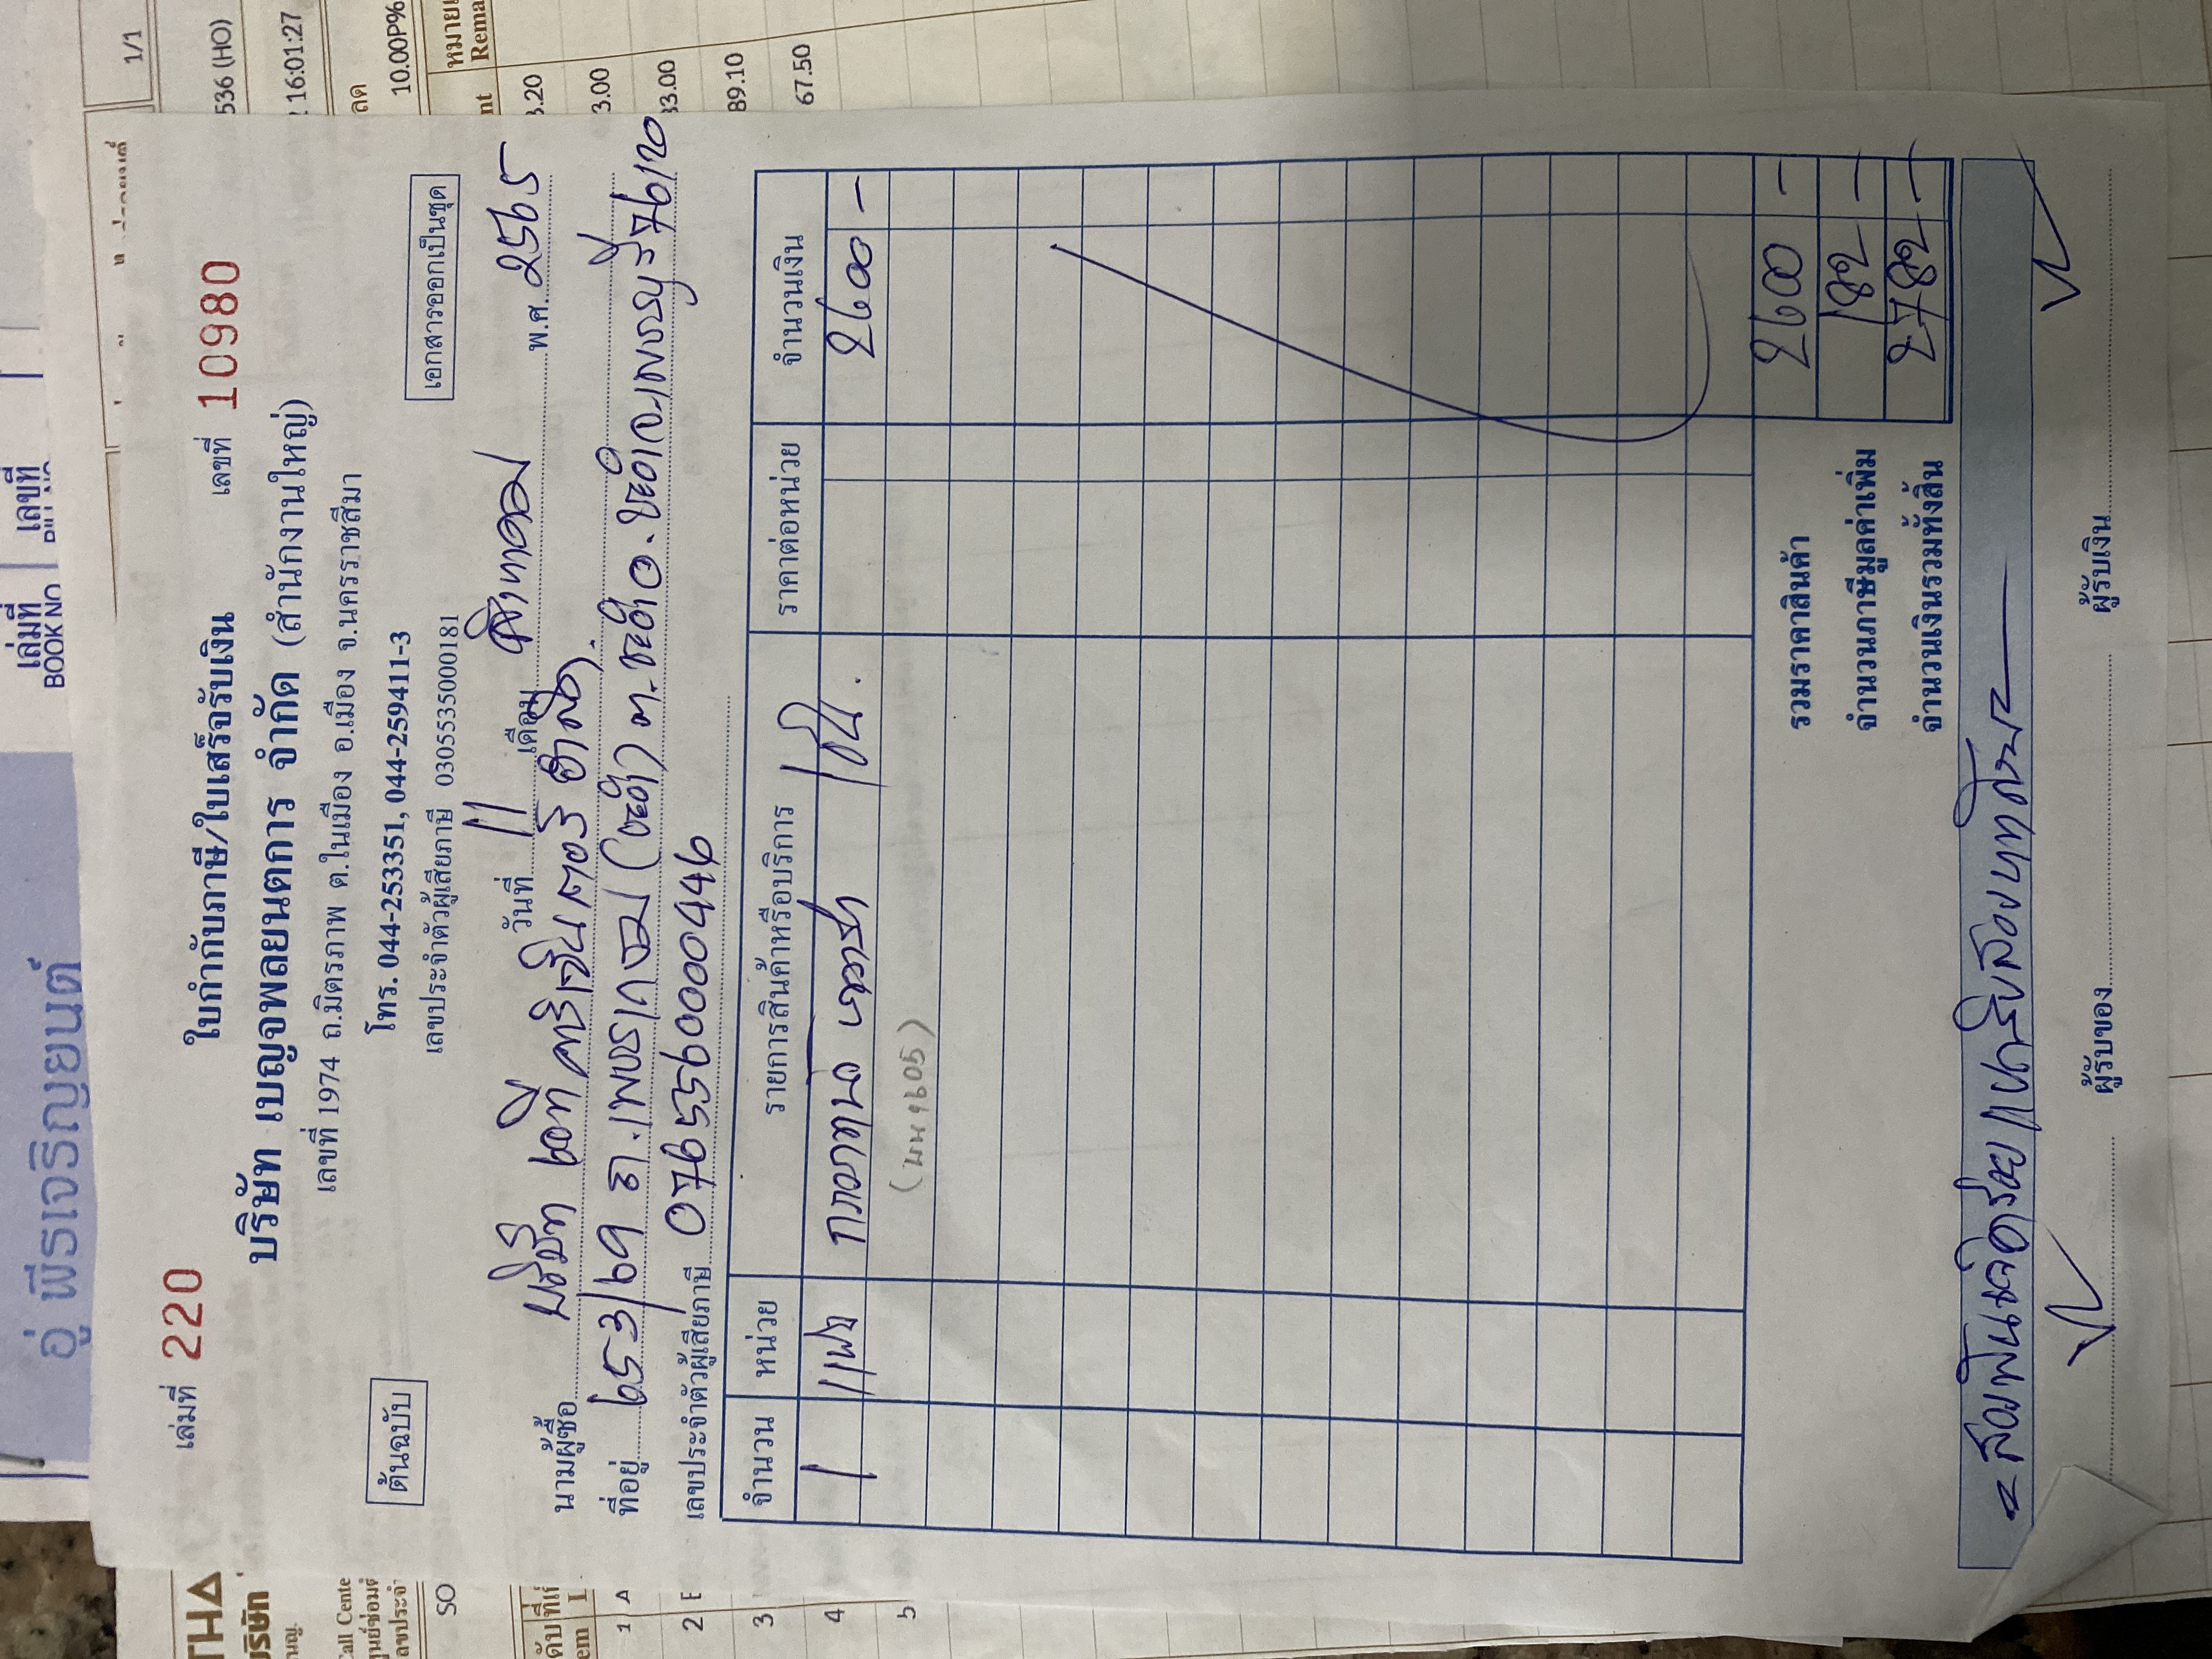 เล่มที่ 220
ใบกำกับภาษี/ใบเสร็จรับเงิน
เลขที่ 10980
บริษัท เบญจพลยนตการ จำกัด (สำนักงานใหญ่)
เลขที่ 1974 ถ.มิตรภาพ ต.ในเมือง อ.เมือง จ.นครราชสีมา
โทร. 044-253351, 044-259411-3
ต้นฉบับ
เลขประจำตัวผู้เสียภาษี 0305535000181
เอกสารออกเป็นชุด
วันที่ 11 เดือน สิงหาคม พ.ศ. 2565
นามผู้ซื้อ บริษัท
ที่อยู่ 653/69 ถ.เพชรเกษม (ชะอำ) ต.ชะอำ อ.ชะอำ จ.เพชรบุรี 76120
เลขประจำตัวผู้เสียภาษี 0765560000446
จำนวน หน่วย รายการสินค้าหรือบริการ ราคาต่อหน่วย จำนวนเงิน
1 2600 -
รวมราคาสินค้า 2600 -
จำนวนภาษีมูลค่าเพิ่ม 182 -
จำนวนเงินรวมทั้งสิ้น 2782 -
= สองพันเจ็ดร้อยแปดสิบสองบาทถ้วน =
ผู้รับของ ผู้รับเงิน
อู่ พีรเจริญยนต์
เล่มที่
BOOK NO
เลขที่
1/1
536 (HO)
16:01:27
ลด
10.00P%
Rema
3.20
3.00
33.00
89.10
67.50
บริษัท
Call Cente
SO
1 A
2 E
3
4
5